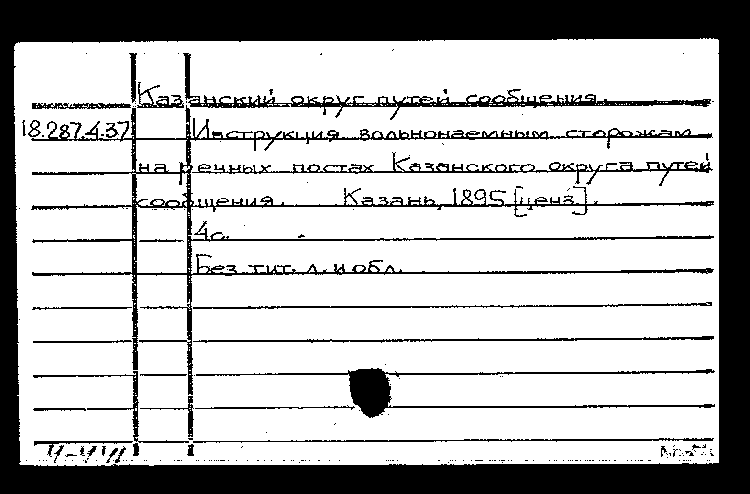 Казанский округ путей сообщения.
18.287.4.37 Инструкция вольнонаемным сторожам
на речных постах Казанского округа путей
сообщения. Казань, 1895 [ценз].
4с.
Без тит. л. и обл.